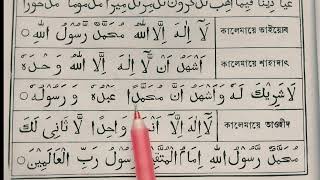 لَآ اِلٰهَ اِلَّا اللهُ مُحَمَّدٌ رَّسُوْلُ اللهِ কালেমায়ে তাইয়্যেব
اَشْهَدُ اَنْ لَّآ اِلٰهَ اِلَّا اللهُ وَحْدَهٗ কালেমায়ে শাহাদাৎ
لَا شَرِيْكَ لَهٗ وَاَشْهَدُ اَنَّ مُحَمَّدًا عَبْدُهٗ وَرَسُوْلُهٗ
لَآ اِلٰهَ اِلَّآ اَنْتَ وَاحِدًا لَّا ثَانِىَ لَكَ কালেমায়ে তাওহীদ
مُحَمَّدٌ رَّسُوْلُ اللهِ اِمَامُ الْمُتَّقِيْنَ رَسُوْلُ رَبِّ الْعَالَمِيْنَ